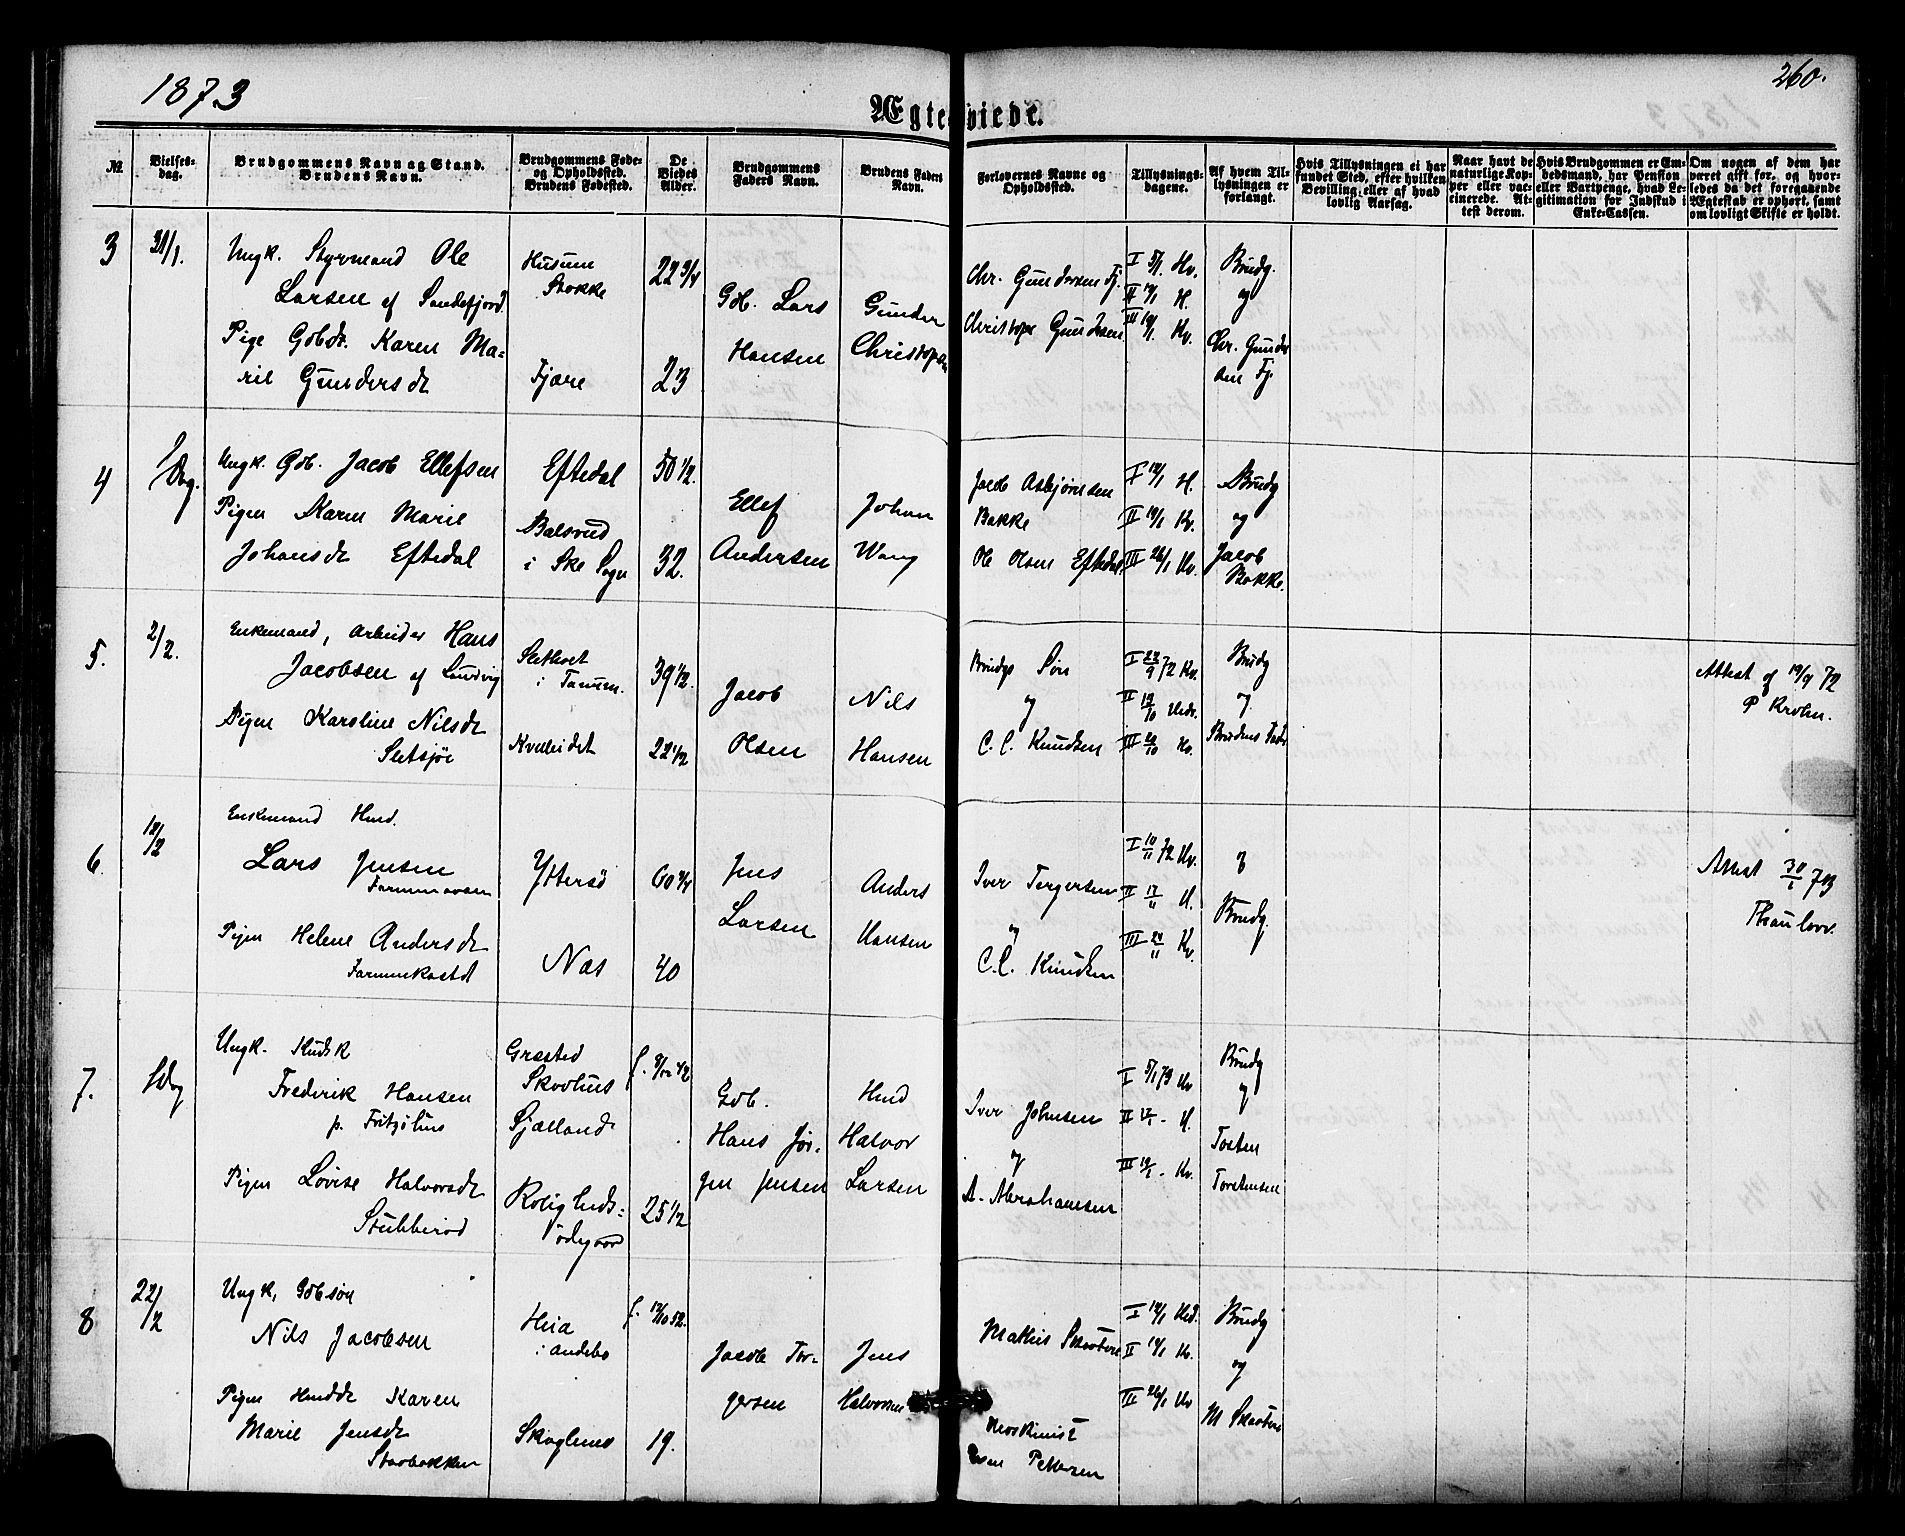 1873
260.
Ægteviede.
№
Vielses-
dag.
Brudgommens Navn og Stand.
Brudens Navn.
Brudgommens Føde-
og Opholdsted.
Brudens Fødested.
De
Viedes
Alder.
Brudgommens
Faders Navn.
Brudens Faders
Navn.
Forlovernes Navne og
Opholdsted.
Tillysnings-
dagene.
Af hvem Til-
lysningen er
forlangt.
Hvis Tillysningen ei har
fundet Sted, efter hvilken
Bevilling eller af hvad
lovlig Aarsag.
Naar havt de
naturlige Kop-
per eller vac-
cinerede. At-
test derom.
Hvis Brudgommen er Em-
bedsmand, har Pension
eller Vartpenge, hvad Le-
gitimation for Indskud i
Enke-Cassen.
Om nogen af dem har
været gift før, og hvor-
ledes da det foregaaende
Ægteskab er ophørt, samt
om lovligt Skifte er holdt.
3
31/1.
Ungk. Styrmand Ole
Larsen af Sandefjord
Pige Gbdr. Karen Ma-
rie Gundersdt
Husum
Stokke
Fjære
22 3/4
23
Gdb. Lars
Hansen
Gunder
Christophersen
Chr. Gundersen Fj.
Christoph Gundersen
I 5/1. Hv.
II 12/1 H.
III 19/1. Kv.
Brudg.
og
Chr. Gunder
sen Fj.
4
Dag.
Ungk. Gdb. Jacob Ellefsen
Pigen Karen Marie
Johansdt Eftedal
Eftedal
Balsrud
i Ske Sogn
50 1/2.
32.
Ellef
Andersen
Johan
Wang
Jacob Asbjørnsen
Bakke
Ole Olsen Eftedal
I 12/1 H.
II 19/1 Kv.
III 26/1 Hv.
Brudg
og
Jacob
Bakke.
5.
2/2.
Enkemand, Arbeider Hans
Jacobsen af Laurvig
Pigen Karoline Nilsdt
Sletsjøe
i Tanum.
Kvelleidet
39 1/2.
22 1/2
Jacob
Olsen
Nils
Hansen
Brudgs
og
C. C. Knudsen
I 22/9 72 Kv.
II 13/10
III 20/10 Kv.
Brudg
og
Brudens Fader
Attest af 19/9 72
P Krohn.
6.
12/2
Enkemand Hmd.
Lars Jensen
Pigen Helene Andersdt
Yttersø
Næs
60 3/4
40
Jens
Larsen
Anders
Hansen
Iver Torgersen
og
C. C. Knudsen
I 10/11 72 Kv.
II 17/11 H.
III 24/11 Kv.
Brudg.
Attest 30/1 73
Thaulow.
7.
Ungk. Kudsk
Frederik Hansen
p. Fritzøhus
Pigen Lovise Halvorsdt
Stubberød
Græsted
Skovhus
Sjælland
Roligheds-
ødegaard
f. 9/12 42
25 1/2
Gdb.
Hans Jør-
gen Jensen
Hmd
Halvor
Larsen
Iver Johnsen
og
A. Abrahamsen
I 5/1 73 Kv
II 12/1 - H.
III 19/1 - Kv.
Brudg
og
Torsten
Torstensen
8
22/2
Ungk, Gdbsøn
Nils Jacobsen
Pigen Hmddt Karen
Marie Jensdt
Stavbakken
Heia
i Andebo
Skoglund
f. 12/10 52.
19.
Jacob Tor-
gersen
Jens
Halvorsen
Mathis
I 12/1 Hed.
II 19/1 Kv.
III 26/1 Hv
Brudg
og
Pettersen